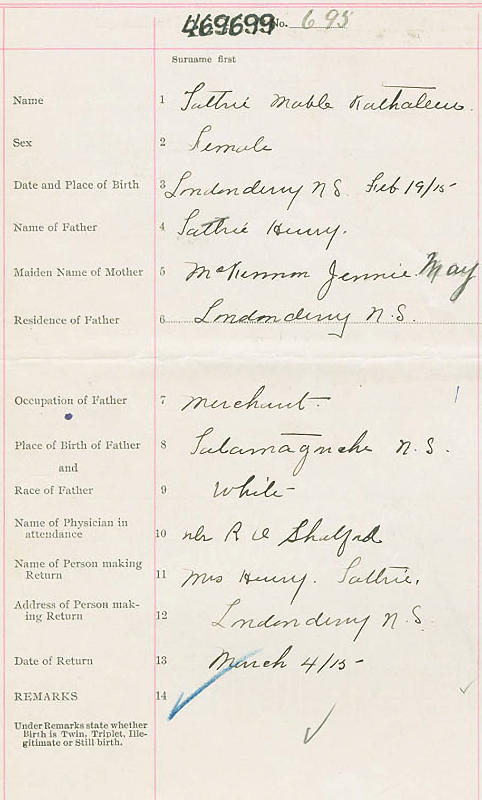 469699 No. 695
Surname first
Name 1 Sattrie Mable Kathaleen
Sex 2 Female
Date and Place of Birth 3 Londonderry N.S. Feb 19/15
Name of Father 4 Sattrie Henry.
Maiden Name of Mother 5 McKinnon Jennie May
Residence of Father 6 Londonderry N.S.
Occupation of Father 7 Merchant
Place of Birth of Father 8 Tatamagouche N.S.
and
Race of Father 9 White
Name of Physician in
attendance 10 R O Shatford
Name of Person making
Return 11 Mrs Henry. Sattrie.
Address of Person mak-
ing Return 12 Londonderry N.S.
Date of Return 13 March 4/15
REMARKS 14
Under Remarks state whether
Birth is Twin, Triplet, Ille-
gitimate or Still birth.